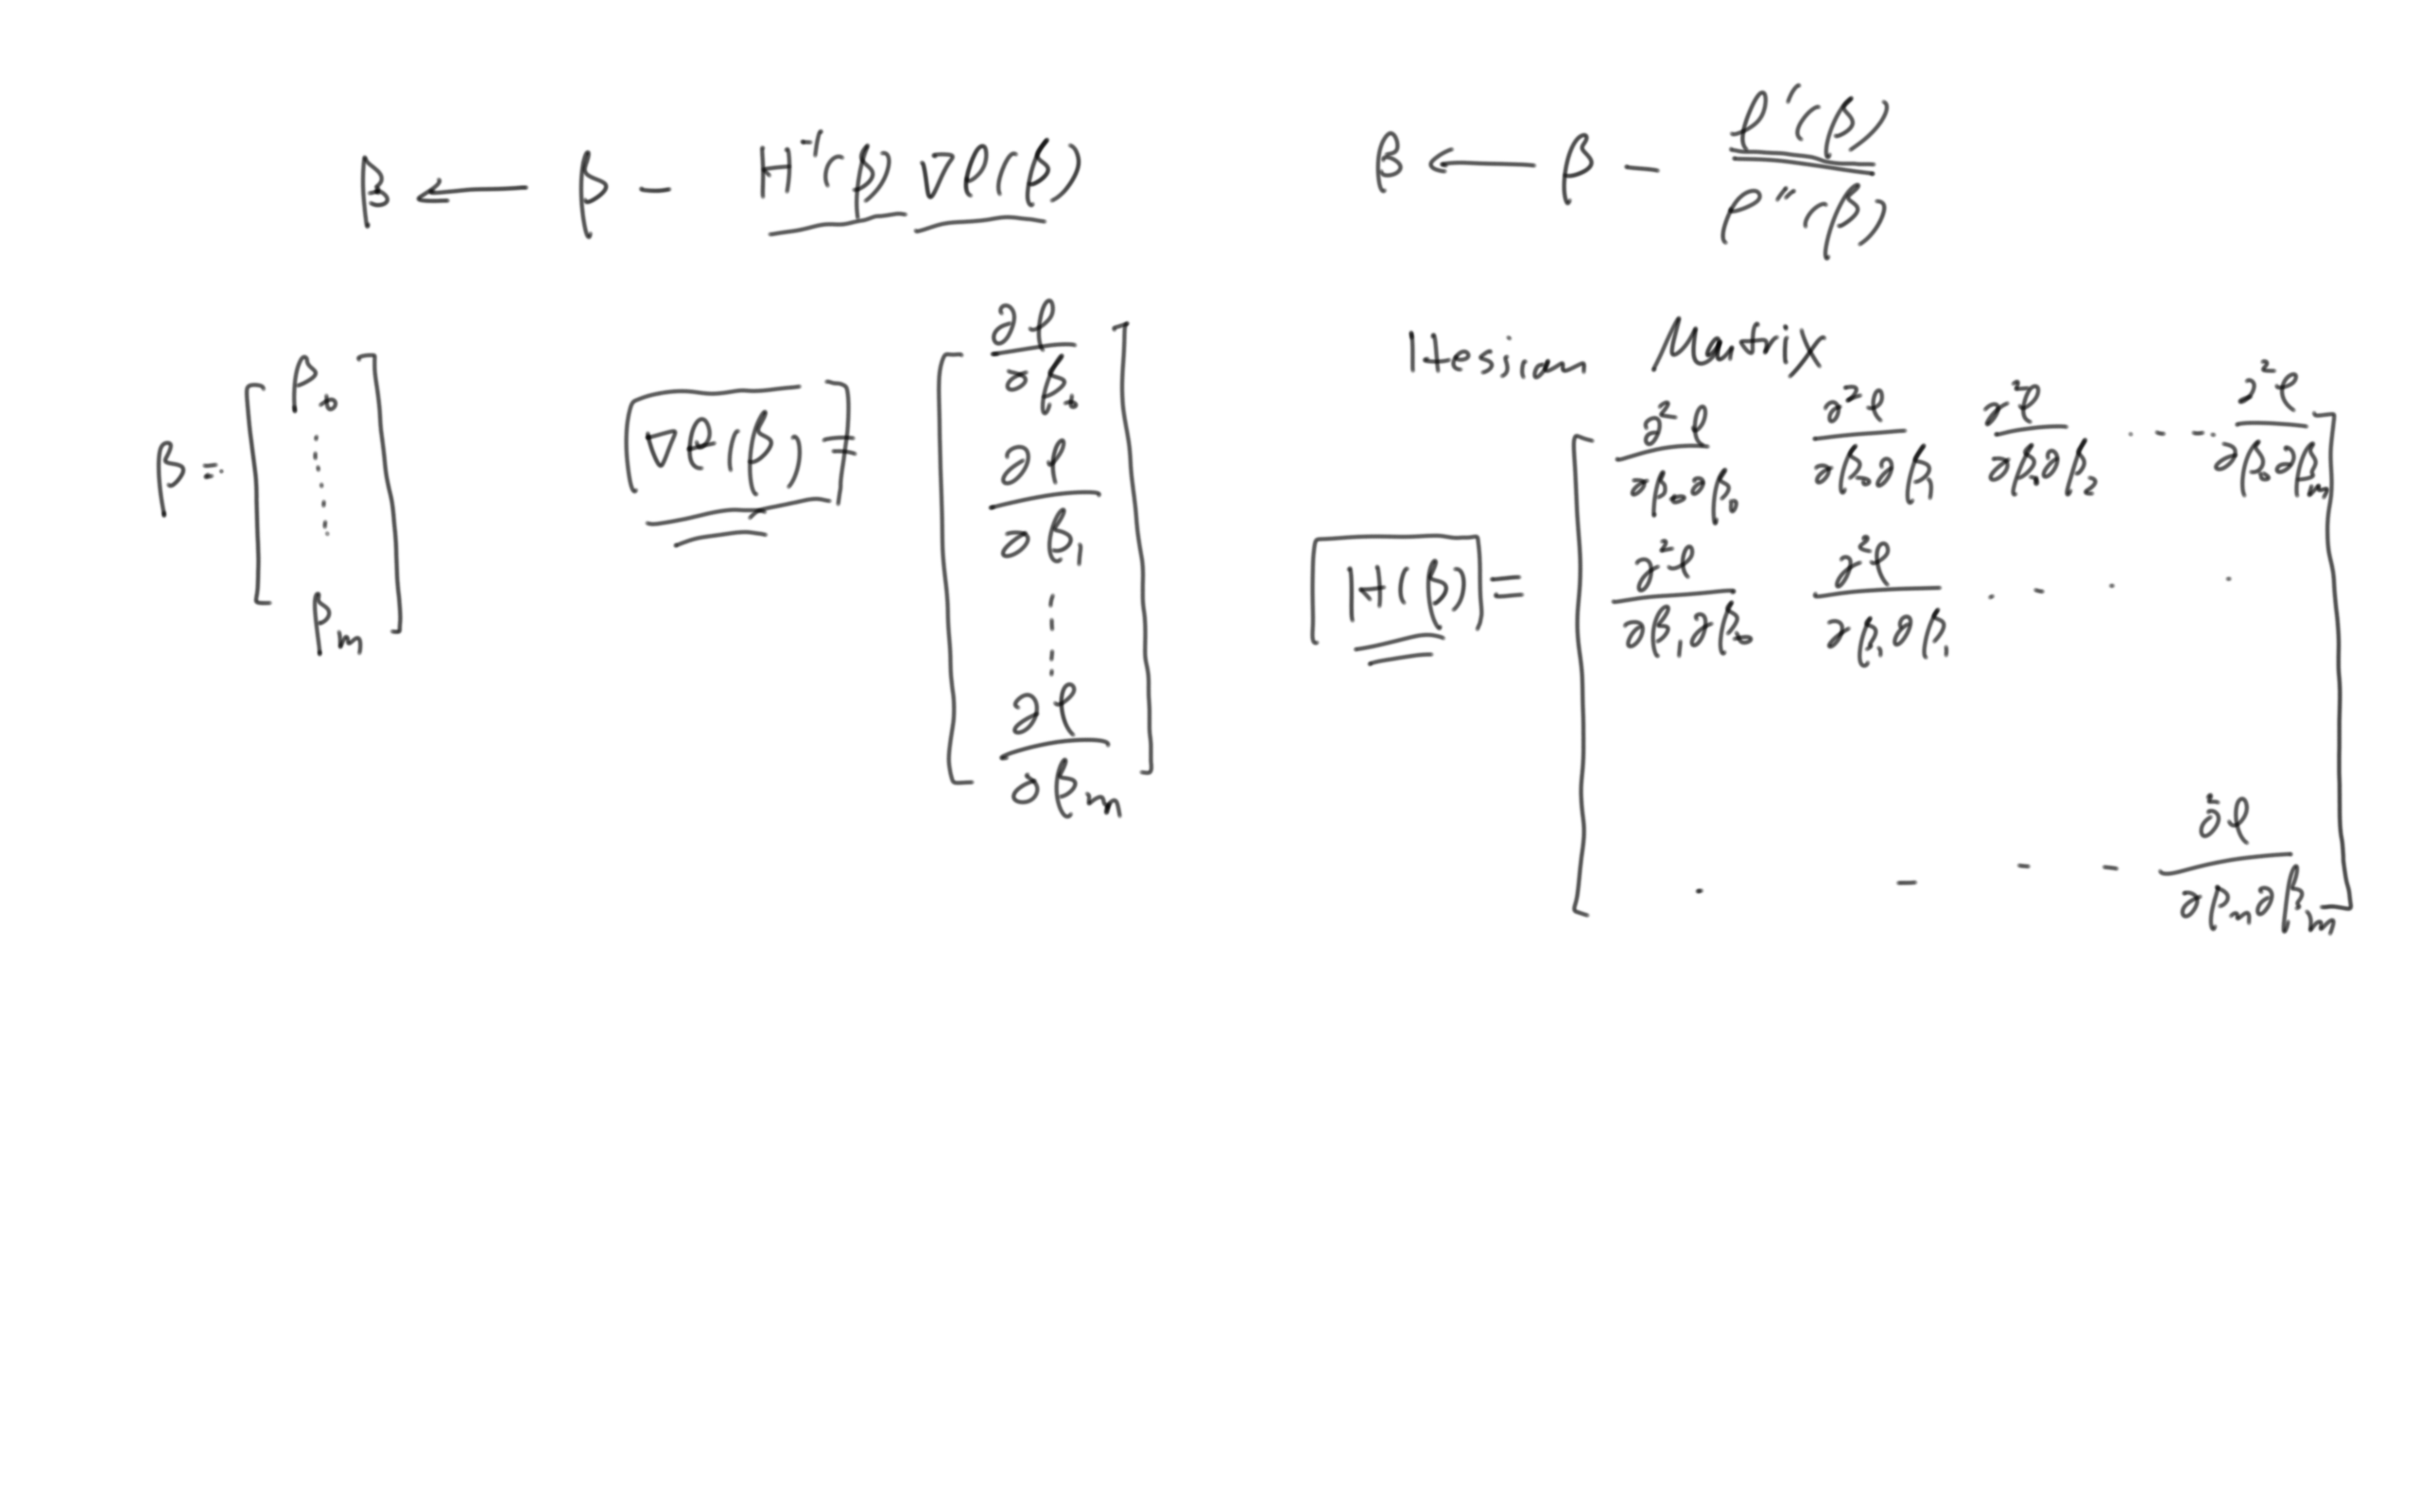 β ← β − H⁻¹(β) ∇ℓ(β)
β ← β − ℓ'(β) / ℓ''(β)
β = [ β₀ ⋮ βₘ ]
∇ℓ(β) = [ ∂ℓ/∂β₀
∂ℓ/∂β₁
⋮
∂ℓ/∂βₘ ]
Hessian Matrix
H(β) = [ ∂²ℓ/∂β₀∂β₀ ∂²ℓ/∂β₀∂β₁ ∂²ℓ/∂β₀∂β₂ ···· ∂²ℓ/∂β₀∂βₘ
∂²ℓ/∂β₁∂β₀ ∂²ℓ/∂β₁∂β₁ ····
···· ∂²ℓ/∂βₘ∂βₘ ]